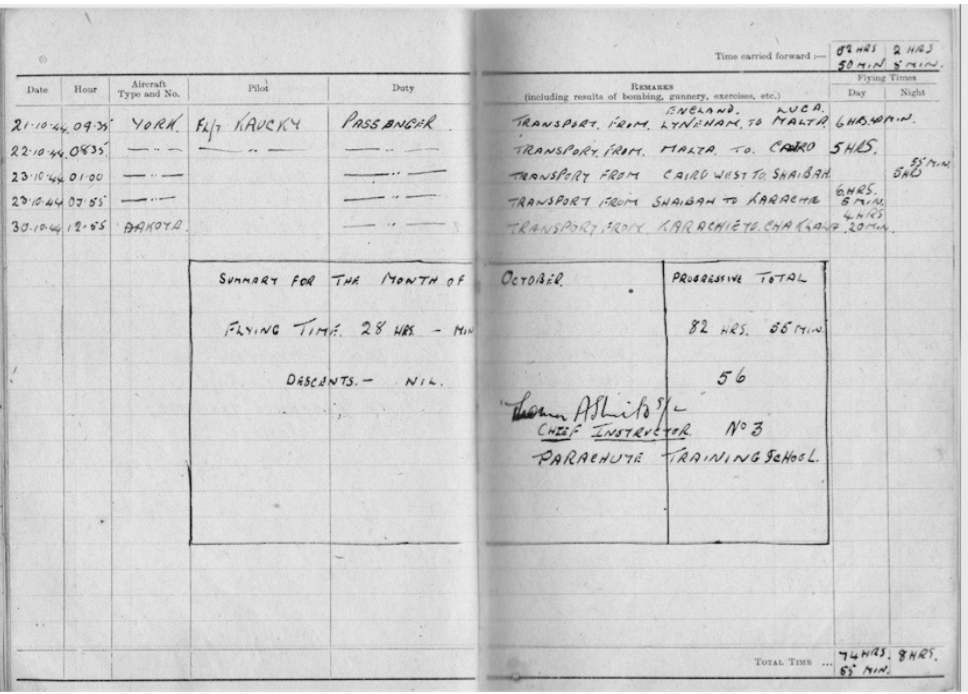 Time carried forward :— 52 HRS 50 MIN. 2 HRS 5 MIN.
Date Hour Aircraft Type and No. Pilot Duty REMARKS (including results of bombing, gunnery, exercises, etc.) Flying Times Day Night
21·10·44 09·35 YORK. FL/T KAUCKY PASSENGER. TRANSPORT. FROM. LYNEHAM, ENGLAND. TO MALTA LUCA. 6 HRS 40 MIN.
22·10·44 0835 — ·· — — ·· — — ·· — TRANSPORT, FROM. MALTA. TO. CAIRO 5 HRS.
23·10·44 01·00 — ·· — — ·· — TRANSPORT FROM CAIRO WEST TO SHAIBAH 5 HRS 55 MIN.
23·10·44 — ·· — — ·· — TRANSPORT FROM SHAIBAH TO KARACHIE 6 HRS. 5 MIN.
30·10·44 12·55 DAKOTA. — ·· — TRANSPORT FROM. KARACHIE TO. CHAKLALA. 4 HRS 20 MIN.
SUMMARY FOR THE MONTH OF OCTOBER. PROGRESSIVE TOTAL
FLYING TIME. 28 HRS — MIN 82 HRS. 55 MIN.
DESCENTS. — NIL. 56
S/L
CHIEF INSTRUCTOR No 3
PARACHUTE TRAINING SCHOOL.
TOTAL TIME ... 74 HRS. 55 MIN. 8 HRS.